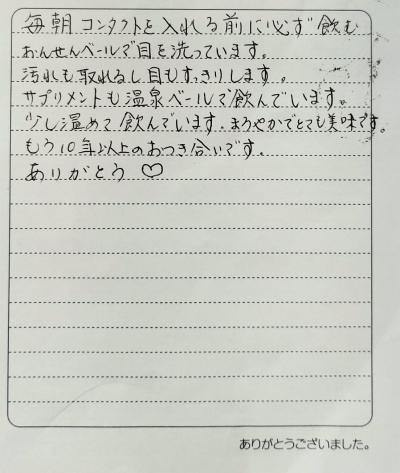 毎朝コンタクトを入れる前に必ず飲む
おんせんベールで目を洗っています。
汚れも取れるし目もすっきりします。
サプリメントも温泉ベールで飲んでいます。
少し温めて飲んでいます。まろやかでとても美味です。
もう10年以上のおつき合いです。
ありがとう♡
ありがとうございました。